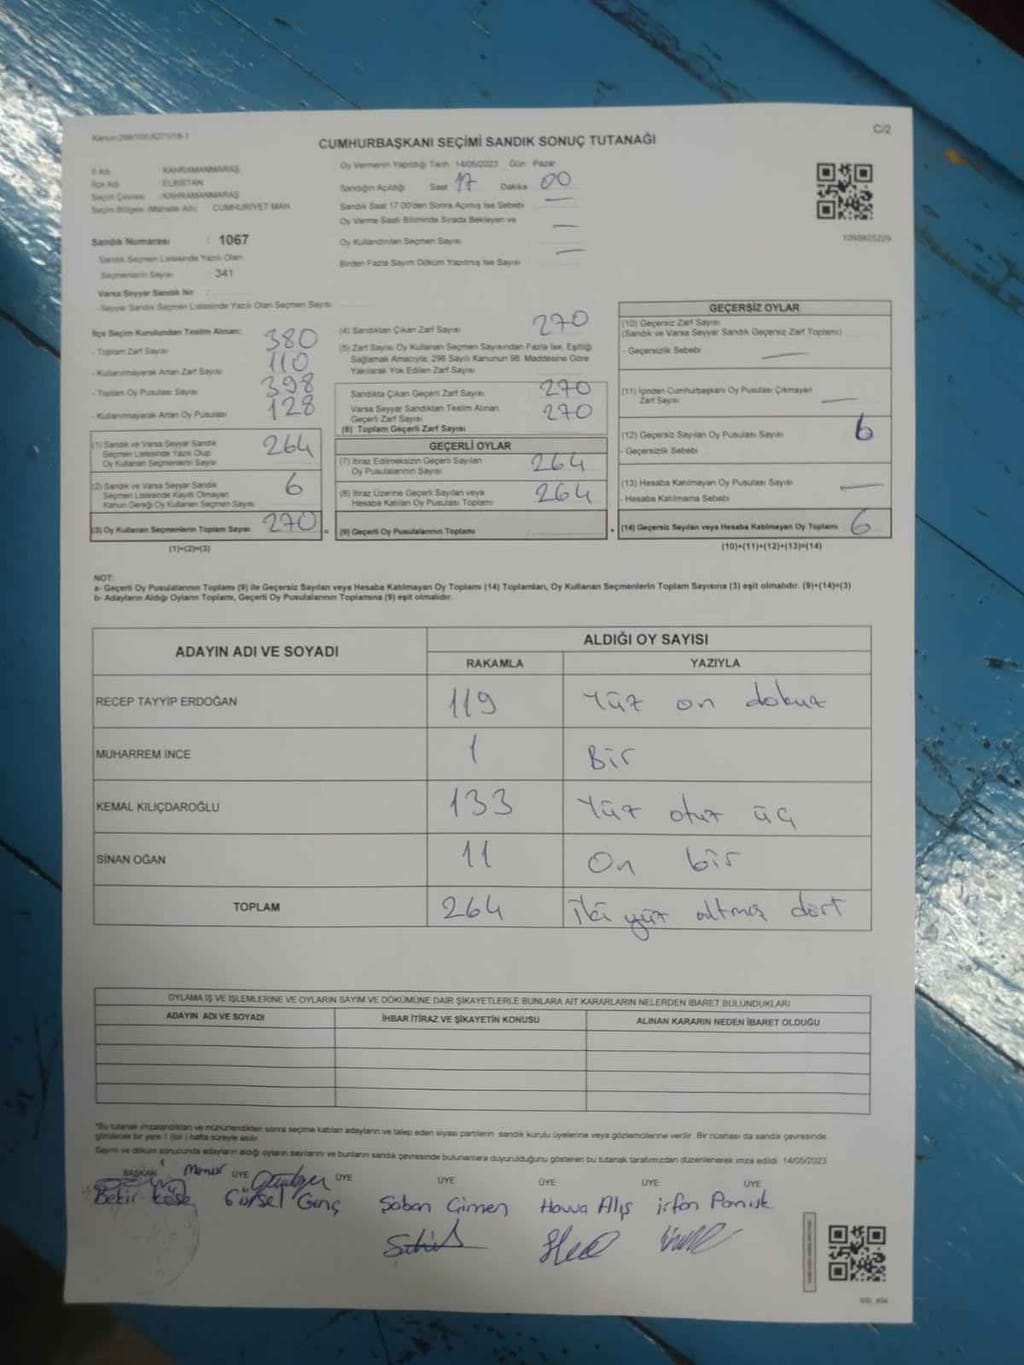 Kanun:298/105,6271/18-1
C/2
CUMHURBAŞKANI SEÇİMİ SANDIK SONUÇ TUTANAĞI
İl Adı : KAHRAMANMARAŞ
İlçe Adı : ELBİSTAN
Seçim Çevresi : KAHRAMANMARAŞ
Seçim Bölgesi (Mahalle Adı) : CUMHURİYET MAH.
Sandık Numarası : 1067
Sandık Seçmen Listesinde Yazılı Olan
Seçmenlerin Sayısı : 341
Varsa Seyyar Sandık No :
- Seyyar Sandık Seçmen Listesinde Yazılı Olan Seçmen Sayısı
Oy Vermenin Yapıldığı Tarih 14/05/2023 Gün Pazar
Sandığın Açıldığı Saat 17 Dakika 00
Sandık Saat 17.00'den Sonra Açılmış İse Sebebi —
Oy Verme Saati Bitiminde Sırada Bekleyen ve
Oy Kullandırılan Seçmen Sayısı —
Birden Fazla Sayım Döküm Yapılmış İse Sayısı —
1093825229
İlçe Seçim Kurulundan Teslim Alınan:
- Toplam Zarf Sayısı 380
- Kullanılmayarak Artan Zarf Sayısı 110
- Toplam Oy Pusulası Sayısı 398
- Kullanılmayarak Artan Oy Pusulası 128
(1) Sandık ve Varsa Seyyar Sandık
Seçmen Listesinde Yazılı Olup
Oy Kullanan Seçmenlerin Sayısı 264
(2) Sandık ve Varsa Seyyar Sandık
Seçmen Listesinde Kayıtlı Olmayan
Kanun Gereği Oy Kullanan Seçmen Sayısı 6
(3) Oy Kullanan Seçmenlerin Toplam Sayısı 270
(1)+(2)=(3)
(4) Sandıktan Çıkan Zarf Sayısı 270
(5) Zarf Sayısı Oy Kullanan Seçmen Sayısından Fazla İse, Eşitliği
Sağlamak Amacıyla, 298 Sayılı Kanunun 98. Maddesine Göre
Yakılarak Yok Edilen Zarf Sayısı
Sandıkta Çıkan Geçerli Zarf Sayısı 270
Varsa Seyyar Sandıktan Teslim Alınan
Geçerli Zarf Sayısı 270
(6) Toplam Geçerli Zarf Sayısı
GEÇERLİ OYLAR
(7) İtiraz Edilmeksizin Geçerli Sayılan
Oy Pusulalarının Sayısı 264
(8) İtiraz Üzerine Geçerli Sayılan veya
Hesaba Katılan Oy Pusulası Toplamı 264
= (9) Geçerli Oy Pusulalarının Toplamı +
GEÇERSİZ OYLAR
(10) Geçersiz Zarf Sayısı
(Sandık ve Varsa Seyyar Sandık Geçersiz Zarf Toplamı)
- Geçersizlik Sebebi —
(11) İçinden Cumhurbaşkanı Oy Pusulası Çıkmayan
Zarf Sayısı —
(12) Geçersiz Sayılan Oy Pusulası Sayısı 6
- Geçersizlik Sebebi
(13) Hesaba Katılmayan Oy Pusulası Sayısı —
- Hesaba Katılmama Sebebi
(14) Geçersiz Sayılan veya Hesaba Katılmayan Oy Toplamı 6
(10)+(11)+(12)+(13)=(14)
NOT:
a- Geçerli Oy Pusulalarının Toplamı (9) ile Geçersiz Sayılan veya Hesaba Katılmayan Oy Toplamı (14) Toplamları, Oy Kullanan Seçmenlerin Toplam Sayısına (3) eşit olmalıdır. (9)+(14)=(3)
b- Adayların Aldığı Oyların Toplamı, Geçerli Oy Pusulalarının Toplamına (9) eşit olmalıdır.
ADAYIN ADI VE SOYADI ALDIĞI OY SAYISI
RAKAMLA YAZIYLA
RECEP TAYYİP ERDOĞAN 119 Yüz on dokuz
MUHARREM İNCE 1 Bir
KEMAL KILIÇDAROĞLU 133 Yüz otuz üç
SİNAN OĞAN 11 On bir
TOPLAM 264 İki yüz altmış dört
OYLAMA İŞ VE İŞLEMLERİNE VE OYLARIN SAYIM VE DÖKÜMÜNE DAİR ŞİKAYETLERLE BUNLARA AİT KARARLARIN NELERDEN İBARET BULUNDUKLARI
ADAYIN ADI VE SOYADI İHBAR İTİRAZ VE ŞİKAYETİN KONUSU ALINAN KARARIN NEDEN İBARET OLDUĞU
"Bu tutanak imzalandıktan ve mühürlendikten sonra seçime katılan adayların ve talep eden siyasi partilerin sandık kurulu üyelerine veya gözlemcilerine verilir. Bir nüshası da sandık çevresinde
görülecek bir yere 1 (bir) hafta süreyle asılır.
Sayım ve döküm sonucunda adayların aldığı oyların sayılarını ve bunların sandık çevresinde bulunanlara duyurulduğunu gösteren bu tutanak tarafımızdan düzenlenerek imza edildi. 14/05/2023
BAŞKAN Memur ÜYE ÜYE ÜYE ÜYE ÜYE ÜYE
Bekir Köse Gürsel Genç Şaban Girmen Havva Alış irfan Pamuk